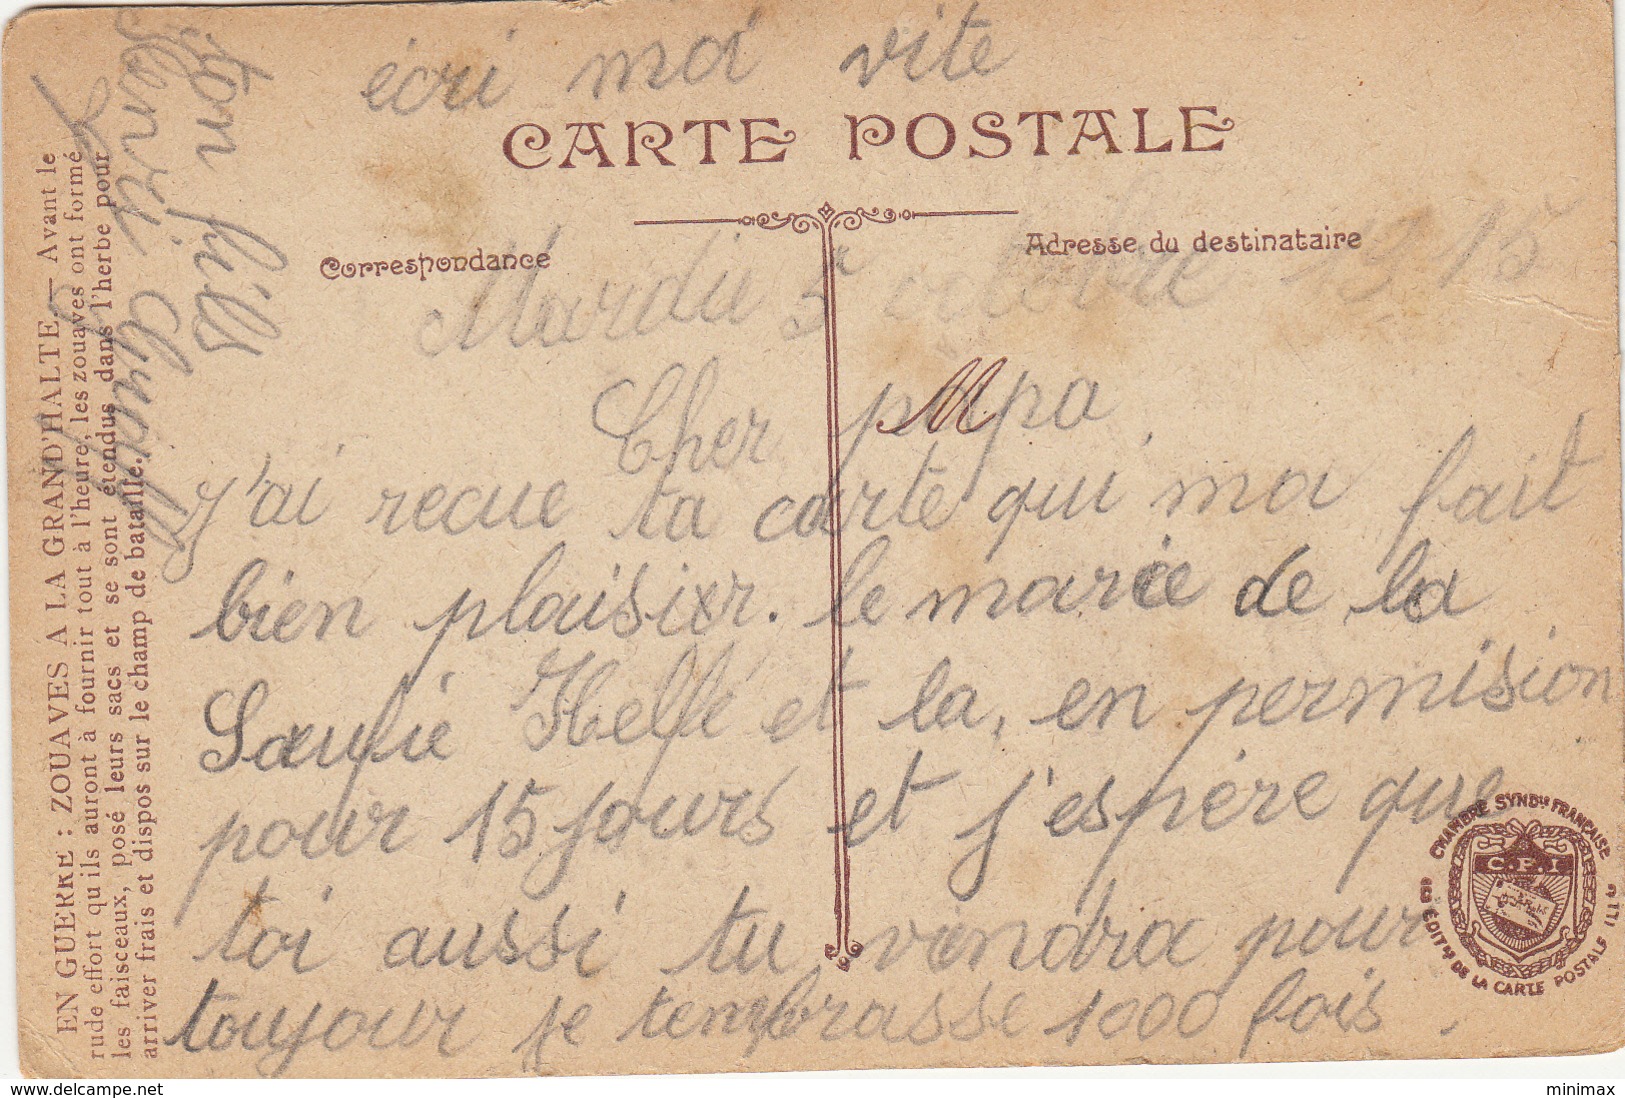 écri moi vite
CARTE POSTALE
Correspondance
Adresse du destinataire
Mardi 5 octobre 1915
Cher papa
J'ai recue ta carte qui ma fait
bien plaisixr. le marie de la
et la, en permision
pour 15 jours et j'espère que
toi aussi tu viendra pour
toujour je tembrasse 1000 fois.
ton fills
Henri
EN GUERRE : ZOUAVES A LA GRAND'HALTE — Avant le
rude effort qu'ils auront à fournir tout à l'heure, les zouaves ont formé
les faisceaux, posé leurs sacs et se sont étendus dans l'herbe pour
arriver frais et dispos sur le champ de bataille.
CHAMBRE SYND^le FRANÇAISE
DE LA CARTE POSTALE ILL
C.P.I
delcampe.net
minimax